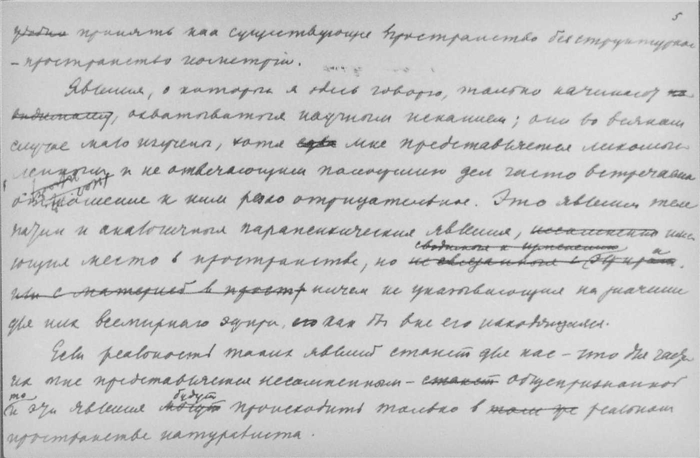 5
принять как существующее пространство бесструктурное
– пространство геометрии.
Явления, о которых я здесь говорю, только начинают
охватываться научным исканием; они во всяком
случае мало изучены, хотя мне представляется
и не отвечающим положению дел часто встречаемое
отношение к ним резко отрицательное. Это явления теле
патии и аналогичные парапсихические явления, несомненно имею
сводимая к
ющие место в пространстве, но не связанные с эфиром
или с материей в простр ничем не указывающие на значение
для них всемирного эфира, его как бы вне его находящиеся.
Если реальность таких явлений станет для нас – что для
мне представляется несомненным – станет общепризнанной
то будут
и эти явления могут происходить только в том же реальном
пространстве натуралиста.